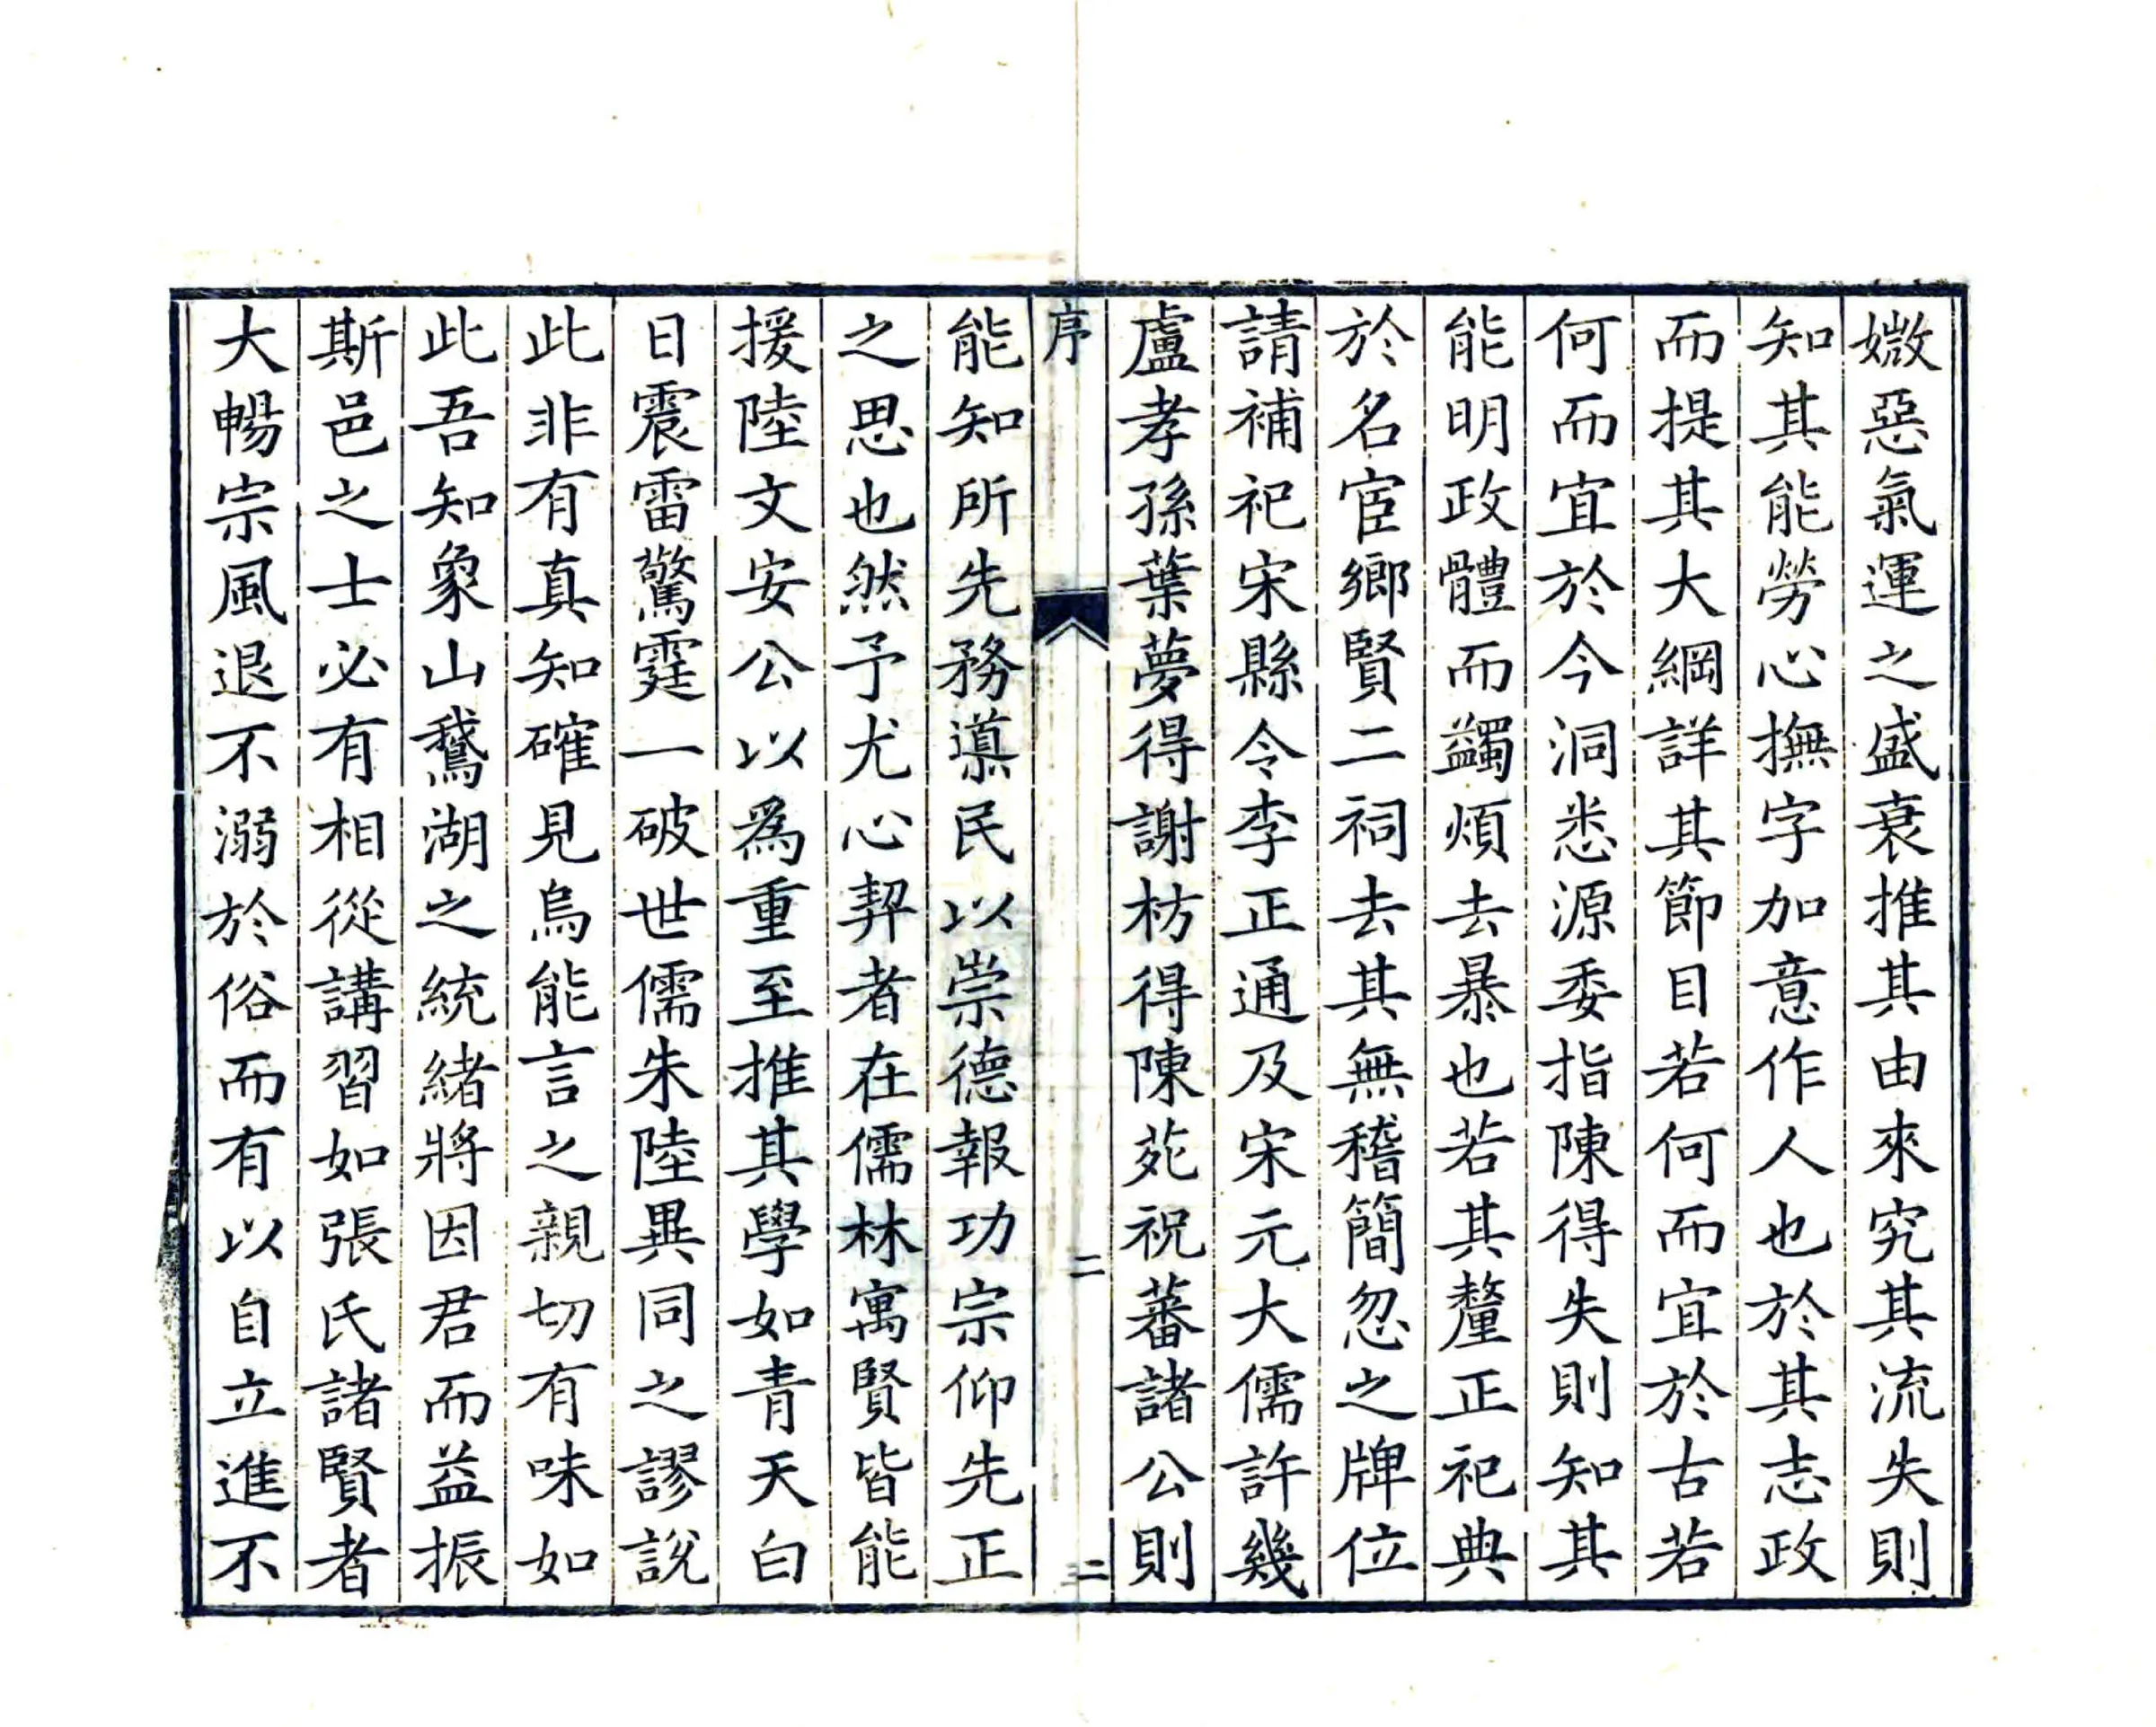 媺惡氣運之盛衰推其由來究其流失則
知其能勞心撫字加意作人也於其志政
而提其大綱詳其節目若何而宜於古若
何而宜於今洞悉源委指陳得失則知其
能明政體而蠲煩去暴也若其釐正祀典
於名宦鄉賢二祠去其無稽簡忽之牌位
請補祀宋縣令李正通及宋元大儒許幾
盧孝孫葉夢得謝枋得陳苑祝蕃諸公則
序
二
二
能知所先務導民以崇德報功宗仰先正
之思也然予尤心契者在儒林寓賢皆能
援陸文安公以為重至推其學如青天白
日震雷驚霆一破世儒朱陸異同之謬說
此非有真知確見烏能言之親切有味如
此吾知象山鵞湖之統緒將因君而益振
斯邑之士必有相從講習如張氏諸賢者
大暢宗風退不溺於俗而有以自立進不